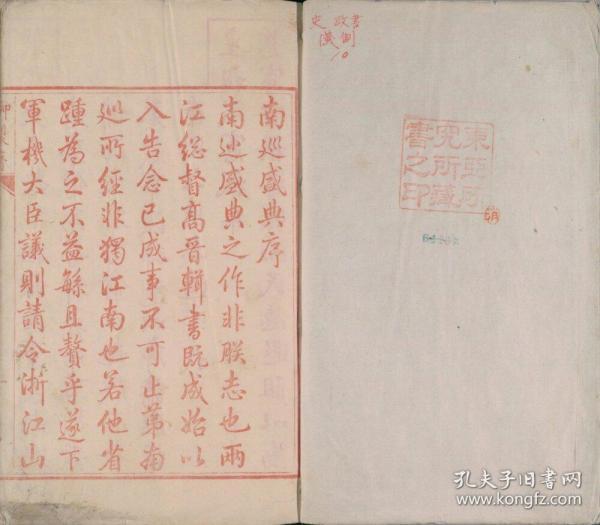 史 政書
儀制
10
東亞研
究所藏
書之印
南巡盛典序
南巡盛典之作非朕志也兩
江總督高晉輯書既成始以
入告念已成事不可止第南
巡所經非獨江南也若他省
踵為之不益繇且贅乎遂下
軍機大臣議則請令浙江山
孔夫子旧书网
www.kongfz.com